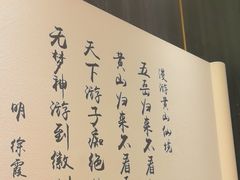 漫游黄山仙境
五岳归来不看
黄山归来不看
天下游子痴绝
无梦神游到徽
明 徐霞